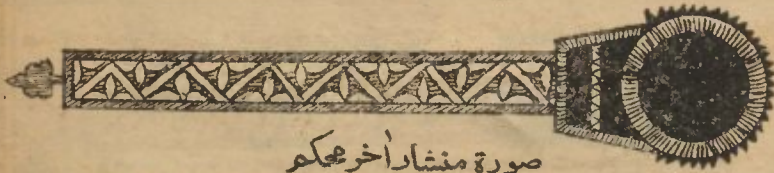 صورة منشار اٰخر محكم